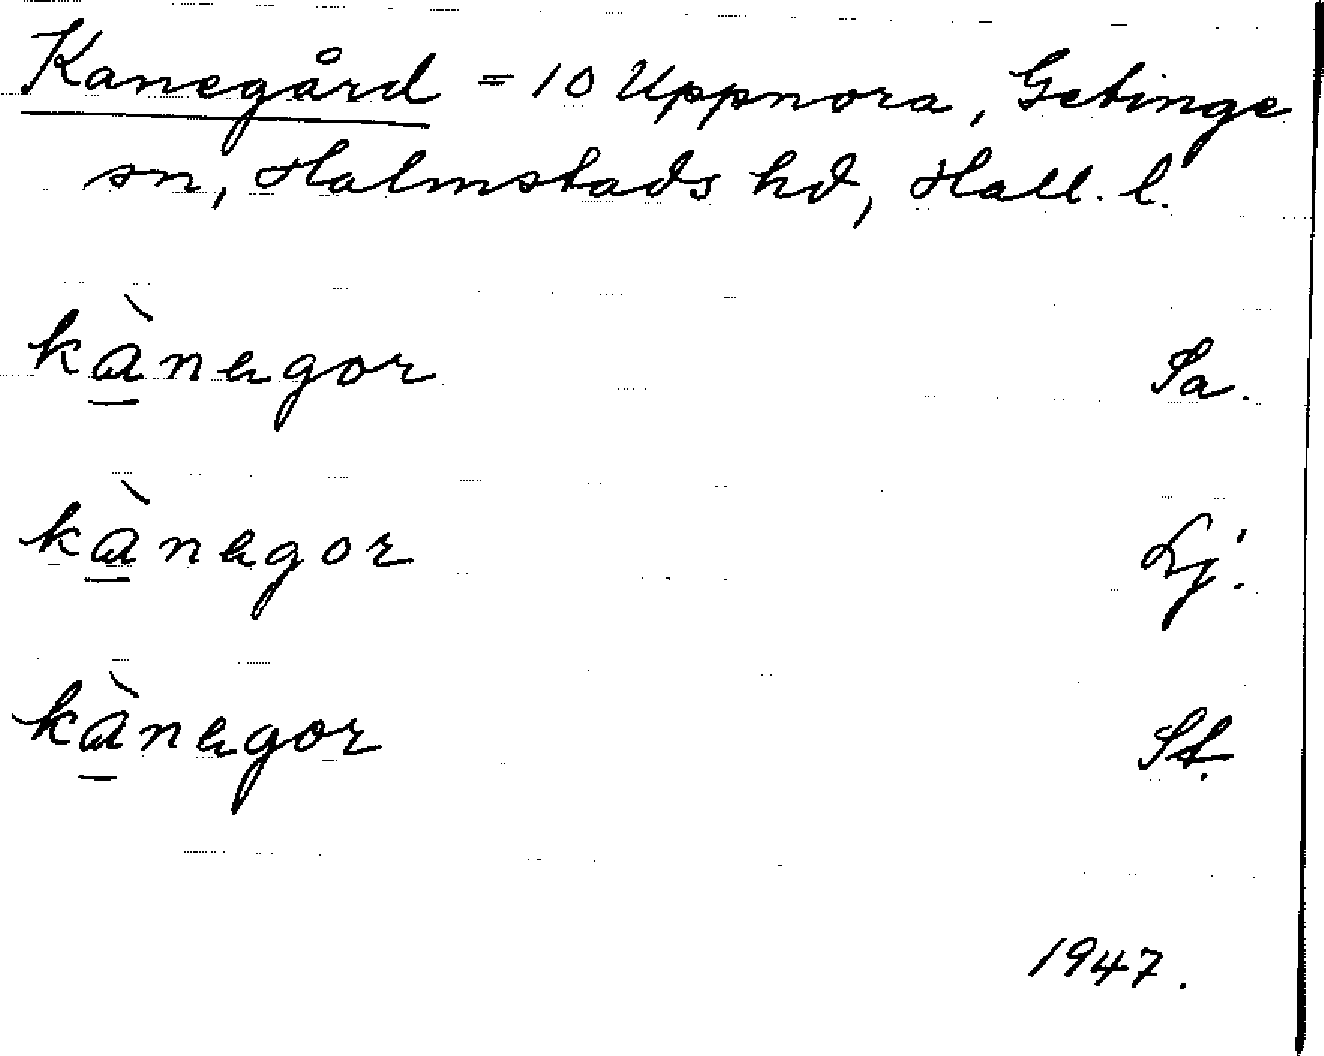 Kanegård = 10 Uppnora, Getinge
sn, Halmstads hd, Hall. l.
kànegor Sa.
kànegor Lj.
kànegor St.
1947.